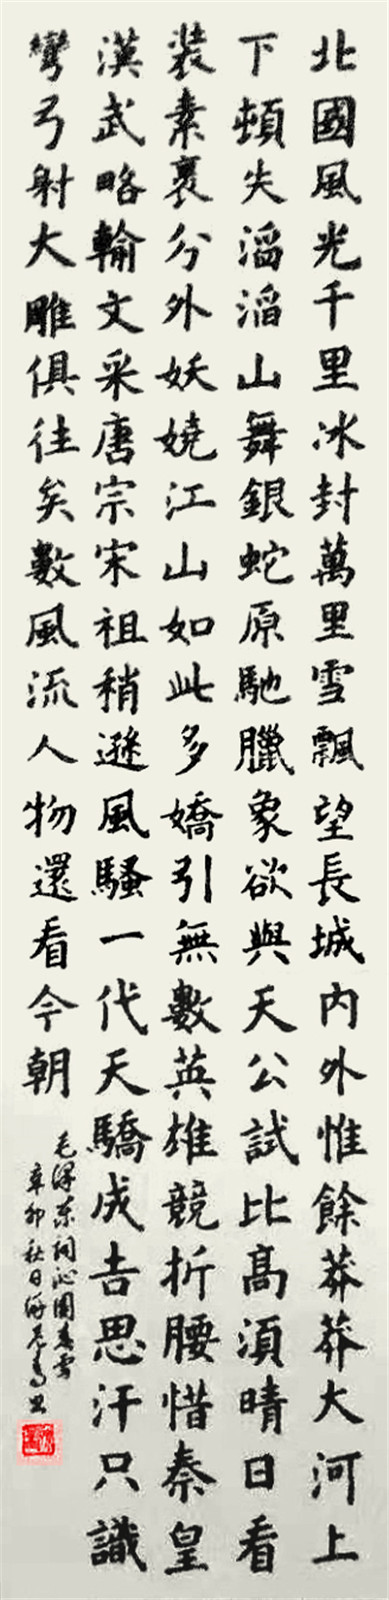 北國風光千里冰封萬里雪飄望長城内外惟餘莽莽大河上
下頓失滔滔山舞銀蛇原馳臘象欲與天公試比高須晴日看
装素裹分外妖嬈江山如此多嬌引無數英雄競折腰惜秦皇
漢武略輸文采唐宗宋祖稍遜風騷一代天驕成吉思汗只識
彎弓射大雕俱往矣數風流人物還看今朝
毛澤东詞沁園春雪
辛卯秋日